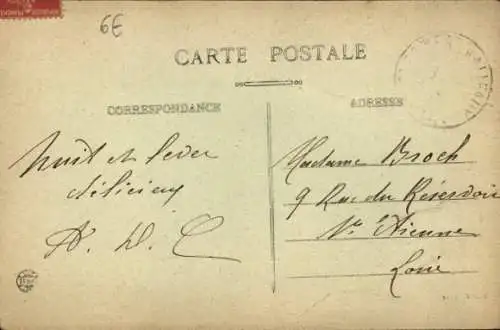 6E
CARTE POSTALE
CORRESPONDANCE
ADRESSE
Nuit et lever
délicieux
A. D. C
Madame Broch
9 Rue du Réservoir
St Etienne
Loire